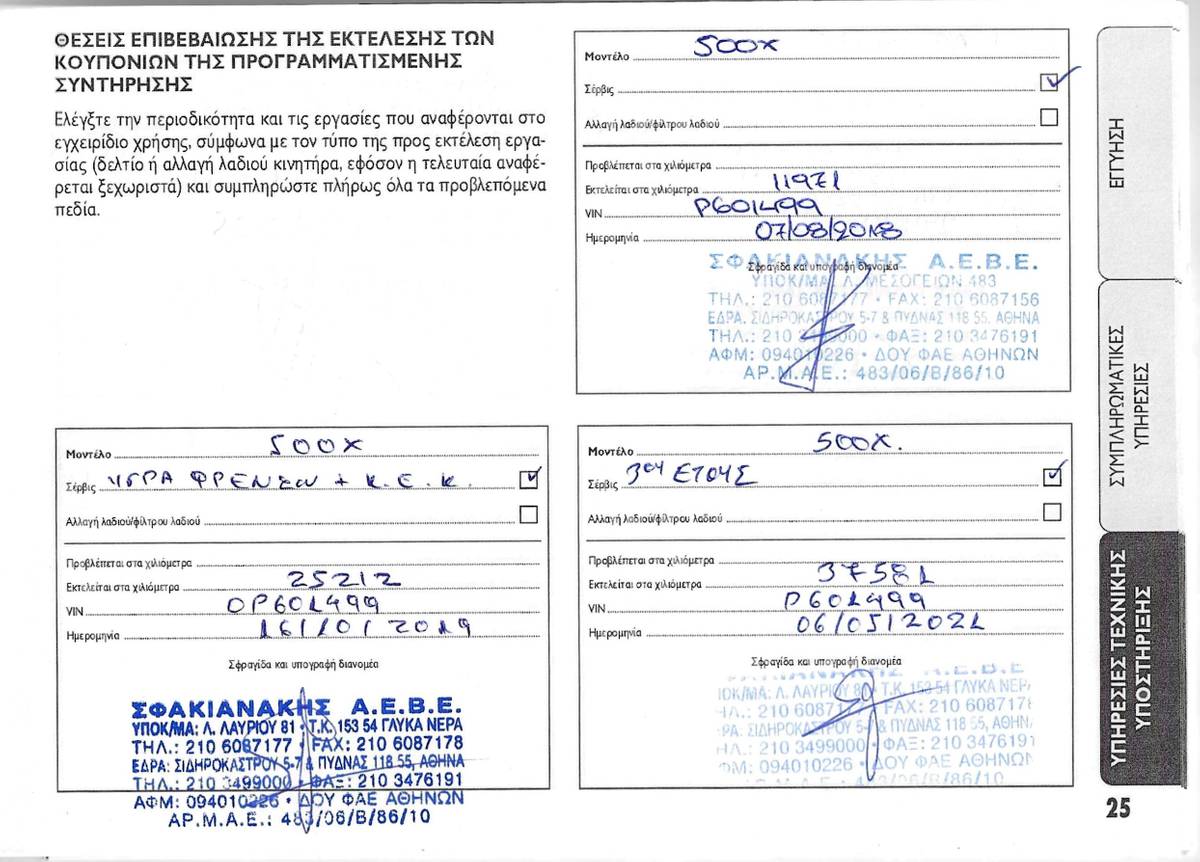 ΘΕΣΕΙΣ ΕΠΙΒΕΒΑΙΩΣΗΣ ΤΗΣ ΕΚΤΕΛΕΣΗΣ ΤΩΝ
ΚΟΥΠΟΝΙΩΝ ΤΗΣ ΠΡΟΓΡΑΜΜΑΤΙΣΜΕΝΗΣ
ΣΥΝΤΗΡΗΣΗΣ
Ελέγξτε την περιοδικότητα και τις εργασίες που αναφέρονται στο
εγχειρίδιο χρήσης, σύμφωνα με τον τύπο της προς εκτέλεση εργα-
σίας (δελτίο ή αλλαγή λαδιού κινητήρα, εφόσον η τελευταία αναφέ-
ρεται ξεχωριστά) και συμπληρώστε πλήρως όλα τα προβλεπόμενα
πεδία.
Μοντέλο 500X
Σέρβις
Αλλαγή λαδιού/φίλτρου λαδιού
Προβλέπεται στα χιλιόμετρα
Εκτελείται στα χιλιόμετρα 11971
VIN P601499
Ημερομηνία 07/08/2018
Σφραγίδα και υπογραφή διανομέα
ΣΦΑΚΙΑΝΑΚΗΣ Α.Ε.Β.Ε.
ΥΠΟΚ/ΜΑ: Λ. ΜΕΣΟΓΕΙΩΝ 483
ΤΗΛ.: 210 6087177 • FAX: 210 6087156
ΕΔΡΑ. ΣΙΔΗΡΟΚΑΣΤΡΟΥ 5-7 & ΠΥΔΝΑΣ 118 55. ΑΘΗΝΑ
ΤΗΛ.: 210 3499000 • ΦΑΞ: 210 3476191
ΑΦΜ: 094010226 • ΔΟΥ ΦΑΕ ΑΘΗΝΩΝ
ΑΡ.Μ.Α.Ε.: 483/06/Β/86/10
Μοντέλο 500X
Σέρβις ΥΓΡΑ ΦΡΕΝΩΝ + Κ.Ε.Κ.
Αλλαγή λαδιού/φίλτρου λαδιού
Προβλέπεται στα χιλιόμετρα
Εκτελείται στα χιλιόμετρα 25212
VIN 0P601499
Ημερομηνία 16/10/2019
Σφραγίδα και υπογραφή διανομέα
ΣΦΑΚΙΑΝΑΚΗΣ Α.Ε.Β.Ε.
ΥΠΟΚ/ΜΑ: Λ. ΛΑΥΡΙΟΥ 81 • Τ.Κ. 153 54 ΓΛΥΚΑ ΝΕΡΑ
ΤΗΛ.: 210 6087177 • FAX: 210 6087178
ΕΔΡΑ: ΣΙΔΗΡΟΚΑΣΤΡΟΥ 5-7 & ΠΥΔΝΑΣ 118 55, ΑΘΗΝΑ
ΤΗΛ.: 210 3499000 • ΦΑΞ: 210 3476191
ΑΦΜ: 094010226 • ΔΟΥ ΦΑΕ ΑΘΗΝΩΝ
ΑΡ.Μ.Α.Ε.: 483/06/Β/86/10
Μοντέλο 500X.
Σέρβις 3ου ΕΤΟΥΣ
Αλλαγή λαδιού/φίλτρου λαδιού
Προβλέπεται στα χιλιόμετρα
Εκτελείται στα χιλιόμετρα 37581
VIN P601499
Ημερομηνία 06/05/2021
Σφραγίδα και υπογραφή διανομέα
Α.Ε.Β.Ε
ΙΟΚ/ΜΑ: Λ. ΛΑΥΡΙΟΥ • Τ.Κ. 153 54 ΓΛΥΚΑ ΝΕΡ
210 • FAX: 210 608717
ΣΙΔΗΡΟΚΑΣΤΡΟΥ 5-7 & ΠΥΔΝΑΣ 118 55, ΑΘΗΝ
210 3499000 • ΦΑΞ: 210 347619
ΦΜ: 094010226 • ΔΟΥ ΦΑΕ ΑΘΗΝΩ
/06/Β/86/10
ΕΓΓΥΗΣΗ
ΣΥΜΠΛΗΡΩΜΑΤΙΚΕΣ
ΥΠΗΡΕΣΙΕΣ
ΥΠΗΡΕΣΙΕΣ ΤΕΧΝΙΚΗΣ
ΥΠΟΣΤΗΡΙΞΗΣ
25